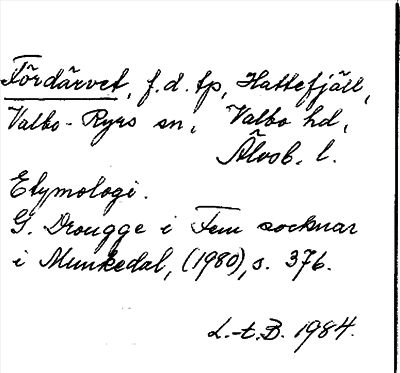 Fördärvet, f.d. tp, Hattefjäll,
Valbo-Ryrs sn, Valbo hd,
Älvsb. l.
Etymologi.
G. Drougge i Fem socknar
i Munkedal, (1980), s. 376.
L.-t.B. 1984.